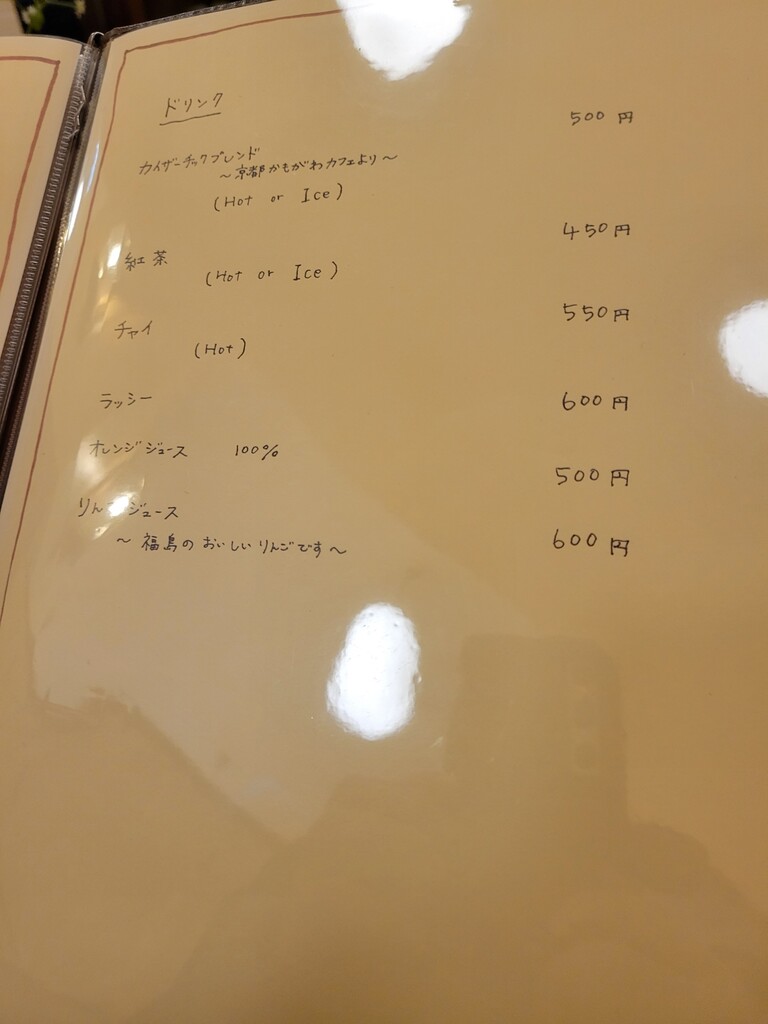 ドリンク
カイザーチックブレンド 500円
～京都かもがわカフェより～
(Hot or Ice)
紅茶 450円
(Hot or Ice)
チャイ 550円
(Hot)
ラッシー 600円
オレンジジュース 100% 500円
りんごジュース 600円
～福島のおいしいりんごです～